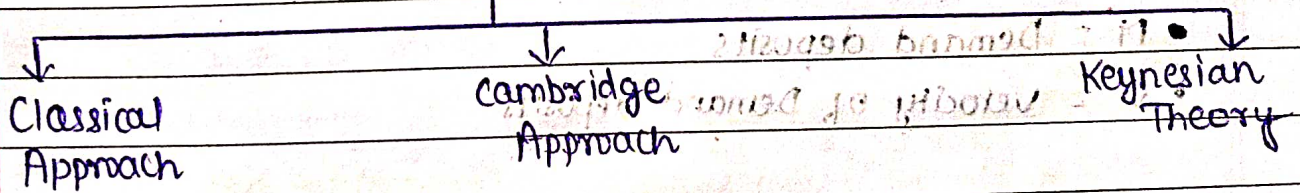 Classical
Approach
Cambridge
Approach
Keynesian
Theory